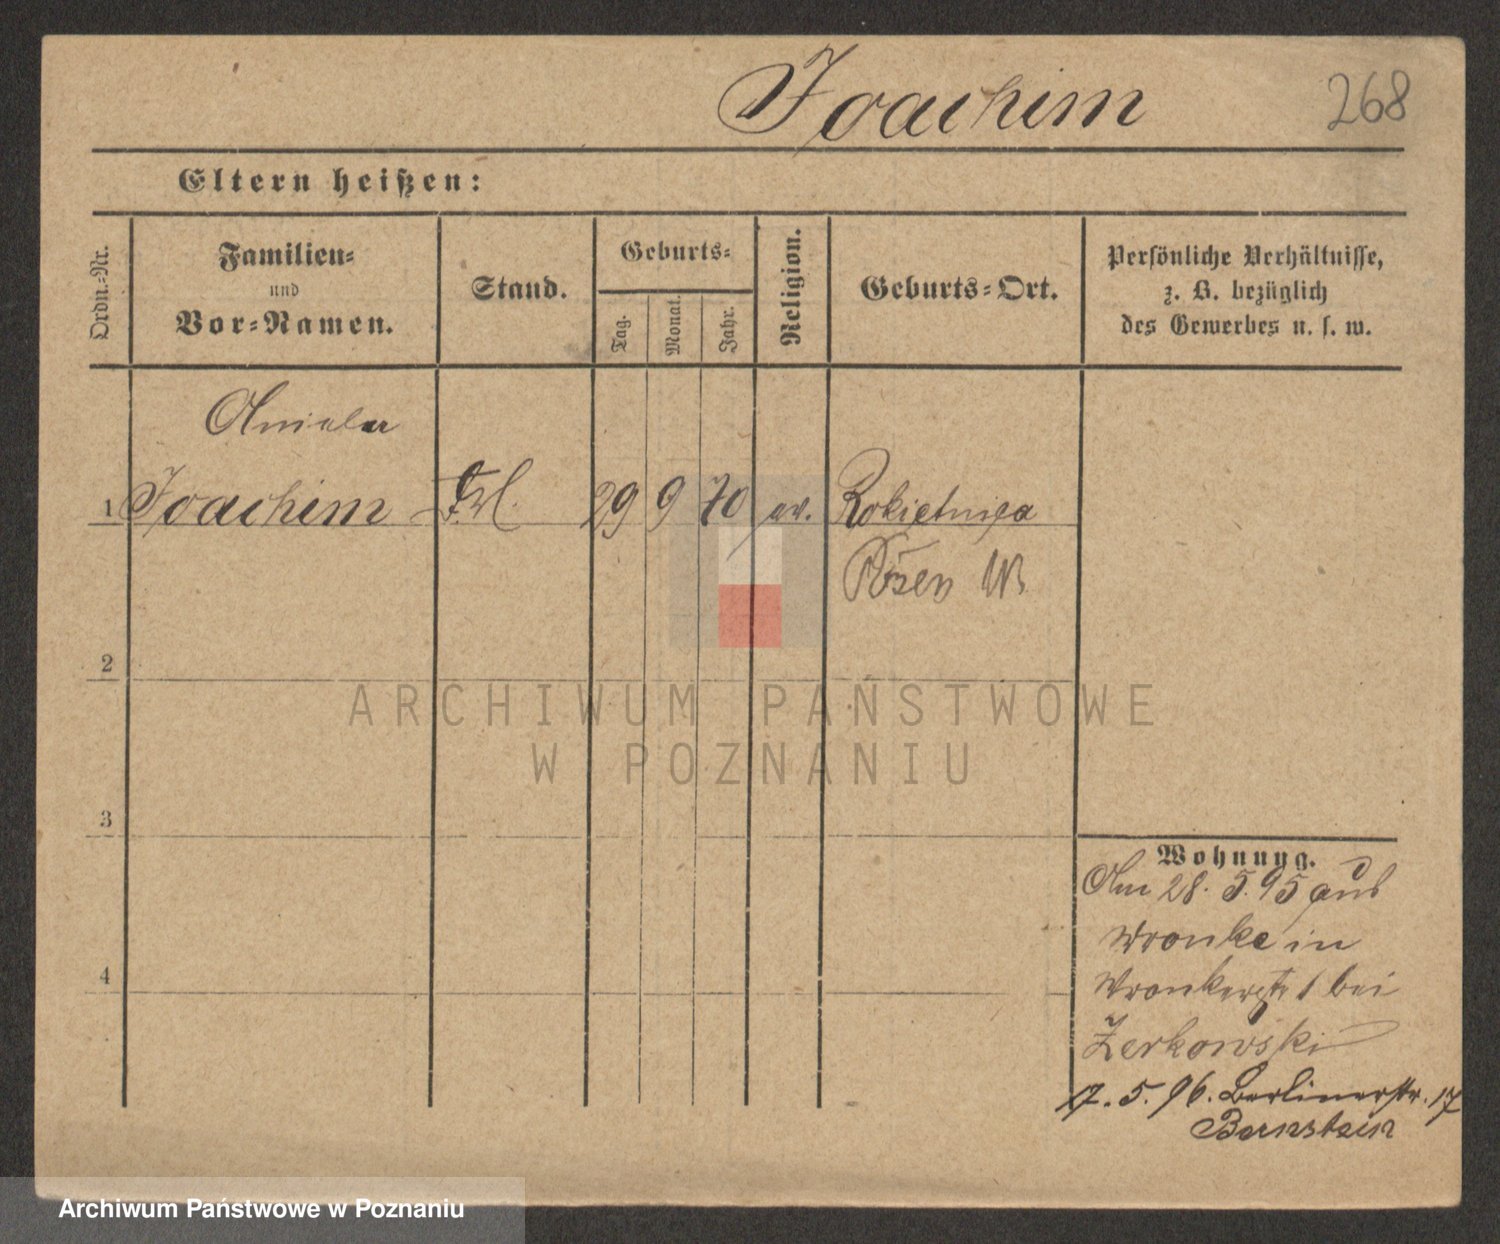 Joachim 268
Eltern heißen:
Ordn.-Nr.
Familien-
und
Vor-Namen.
Stand.
Geburts-
Tag.
Monat.
Jahr.
Religion.
Geburts-Ort.
Persönliche Verhältnisse,
z. B. bezüglich
des Gewerbes u. s. w.
Aniela
1 Joachim Frl. 29 9 70 ev. Rokietnica
Posen W
2
3
4
Wohnung.
Am 28. 5. 95 aus
Wronke in
Wronkerstr 1 bei
Zerkowski
17. 5. 96. Berlinerstr. 17
Bernstein
ARCHIWUM PAŃSTWOWE
W POZNANIU
Archiwum Państwowe w Poznaniu